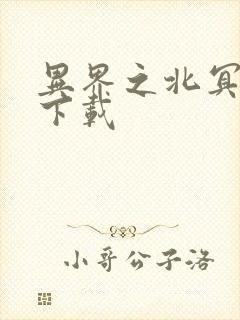 異界之北冥
下載
小哥公子洛